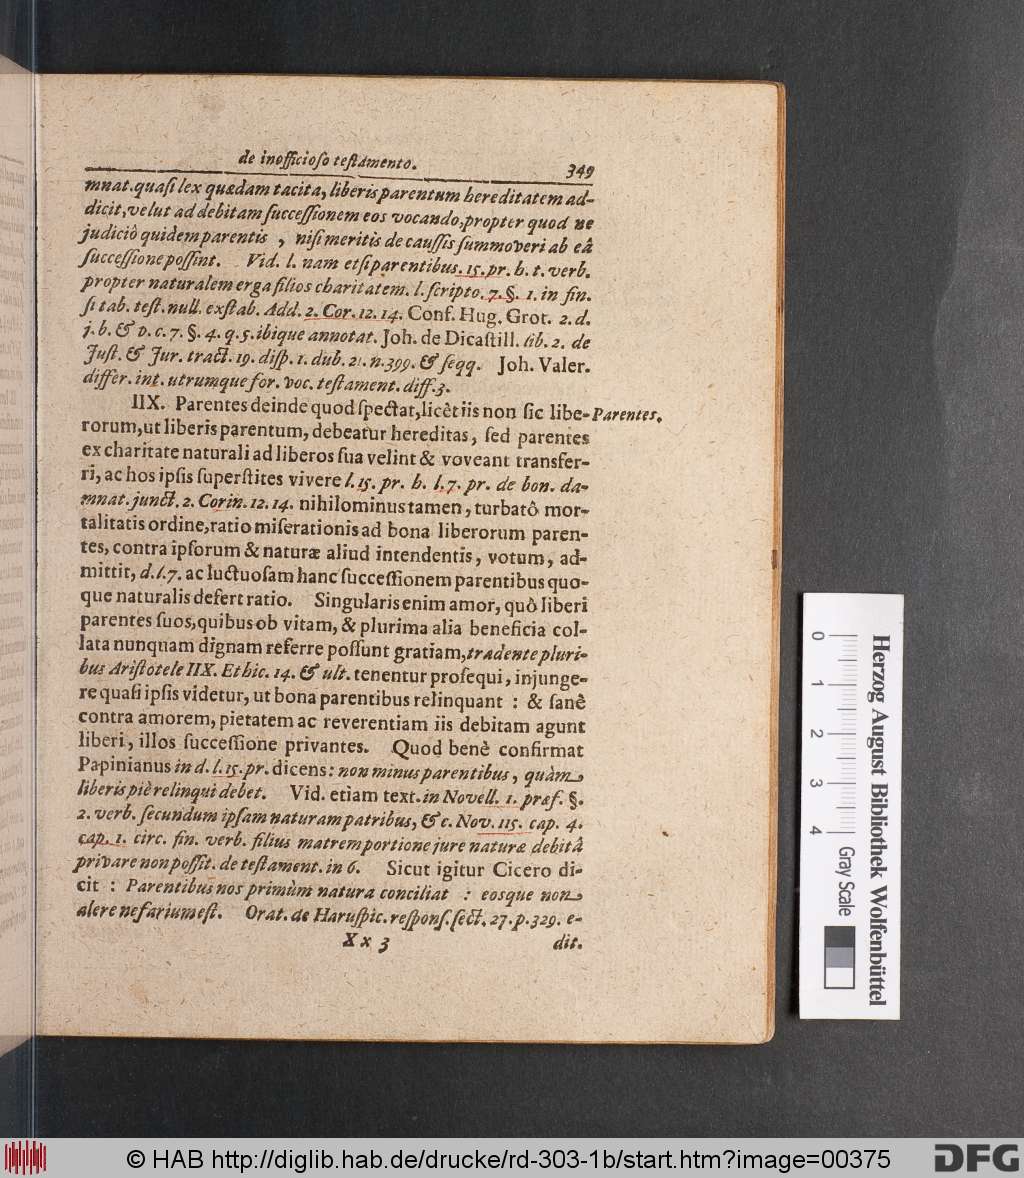 de inofficioſo teſtamento. 349
mnat. quaſi lex quædam tacita, liberis parentum hereditatem ad-
dicit, velut ad debitam ſucceſſionem eos vocando, propter quod ne
judiciò quidem parentis , niſi meritis de cauſſis ſummoveri ab eâ
ſucceſſione poſſint. Vid. l. nam etſi parentibus. 15. pr. h. t. verb.
propter naturalem erga filios charitatem. l. ſcripto. 7. §. 1. in fin.
ſi tab. teſt. null. exſtab. Add. 2. Cor. 12. 14. Conf. Hug. Grot. 2. d.
j. b. & p. c. 7. §. 4. q. 5. ibique annotat. Joh. de Dicaſtill. lib. 2. de
Juſt. & Jur. tract. 19. diſp. 1. dub. 21. n. 399. & ſeqq. Joh. Valer.
differ. int. utrumque for. voc. teſtament. diff. 3.
IIX. Parentes deinde quod ſpectat, licèt iis non ſic libe- Parentes.
rorum, ut liberis parentum, debeatur hereditas, ſed parentes
ex charitate naturali ad liberos ſua velint & voveant transfer-
ri, ac hos ipſis ſuperſtites vivere l. 15. pr. h. l. 7. pr. de bon. da-
mnat. junct. 2. Corin. 12. 14. nihilominus tamen, turbatô mor-
talitatis ordine, ratio miſerationis ad bona liberorum paren-
tes, contra ipſorum & naturæ aliud intendentis, votum, ad-
mittit, d. l. 7. ac luctuoſam hanc ſucceſſionem parentibus quo-
que naturalis defert ratio. Singularis enim amor, quô liberi
parentes ſuos, quibus ob vitam, & plurima alia beneficia col-
lata nunquam dignam referre poſſunt gratiam, tradente pluri-
bus Ariſtotele IIX. Ethic. 14. & ult. tenentur proſequi, injunge-
re quaſi ipſis videtur, ut bona parentibus relinquant : & ſanè
contra amorem, pietatem ac reverentiam iis debitam agunt
liberi, illos ſucceſſione privantes. Quod benè confirmat
Papinianus in d. l. 15. pr. dicens: non minus parentibus, quàm
liberis piè relinqui debet. Vid. etiam text. in Novell. 1. præf. §.
2. verb. ſecundum ipſam naturam patribus, & c. Nov. 115. cap. 4.
cap. 1. circ. fin. verb. filius matrem portione jure naturæ debitâ
privare non poſſit. de teſtament. in 6. Sicut igitur Cicero di-
cit : Parentibus nos primùm natura conciliat : eosque non
alere nefarium eſt. Orat. de Haruſpic. reſponſ. ſect. 27. p. 329. e-
Xx 3 dit.
0 1 2 3 4
Gray Scale
Herzog August Bibliothek Wolfenbüttel
© HAB http://diglib.hab.de/drucke/rd-303-1b/start.htm?image=00375
DFG